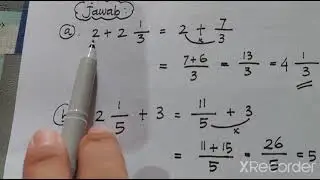 Jawab:
(a). 2 + 2 1/3 = 2 + 7/3
= 7+6/3 = 13/3 = 4 1/3
2 1/5 + 3 = 11/5 + 3
= 11+15/5 = 26/5 = 5
XRecorder